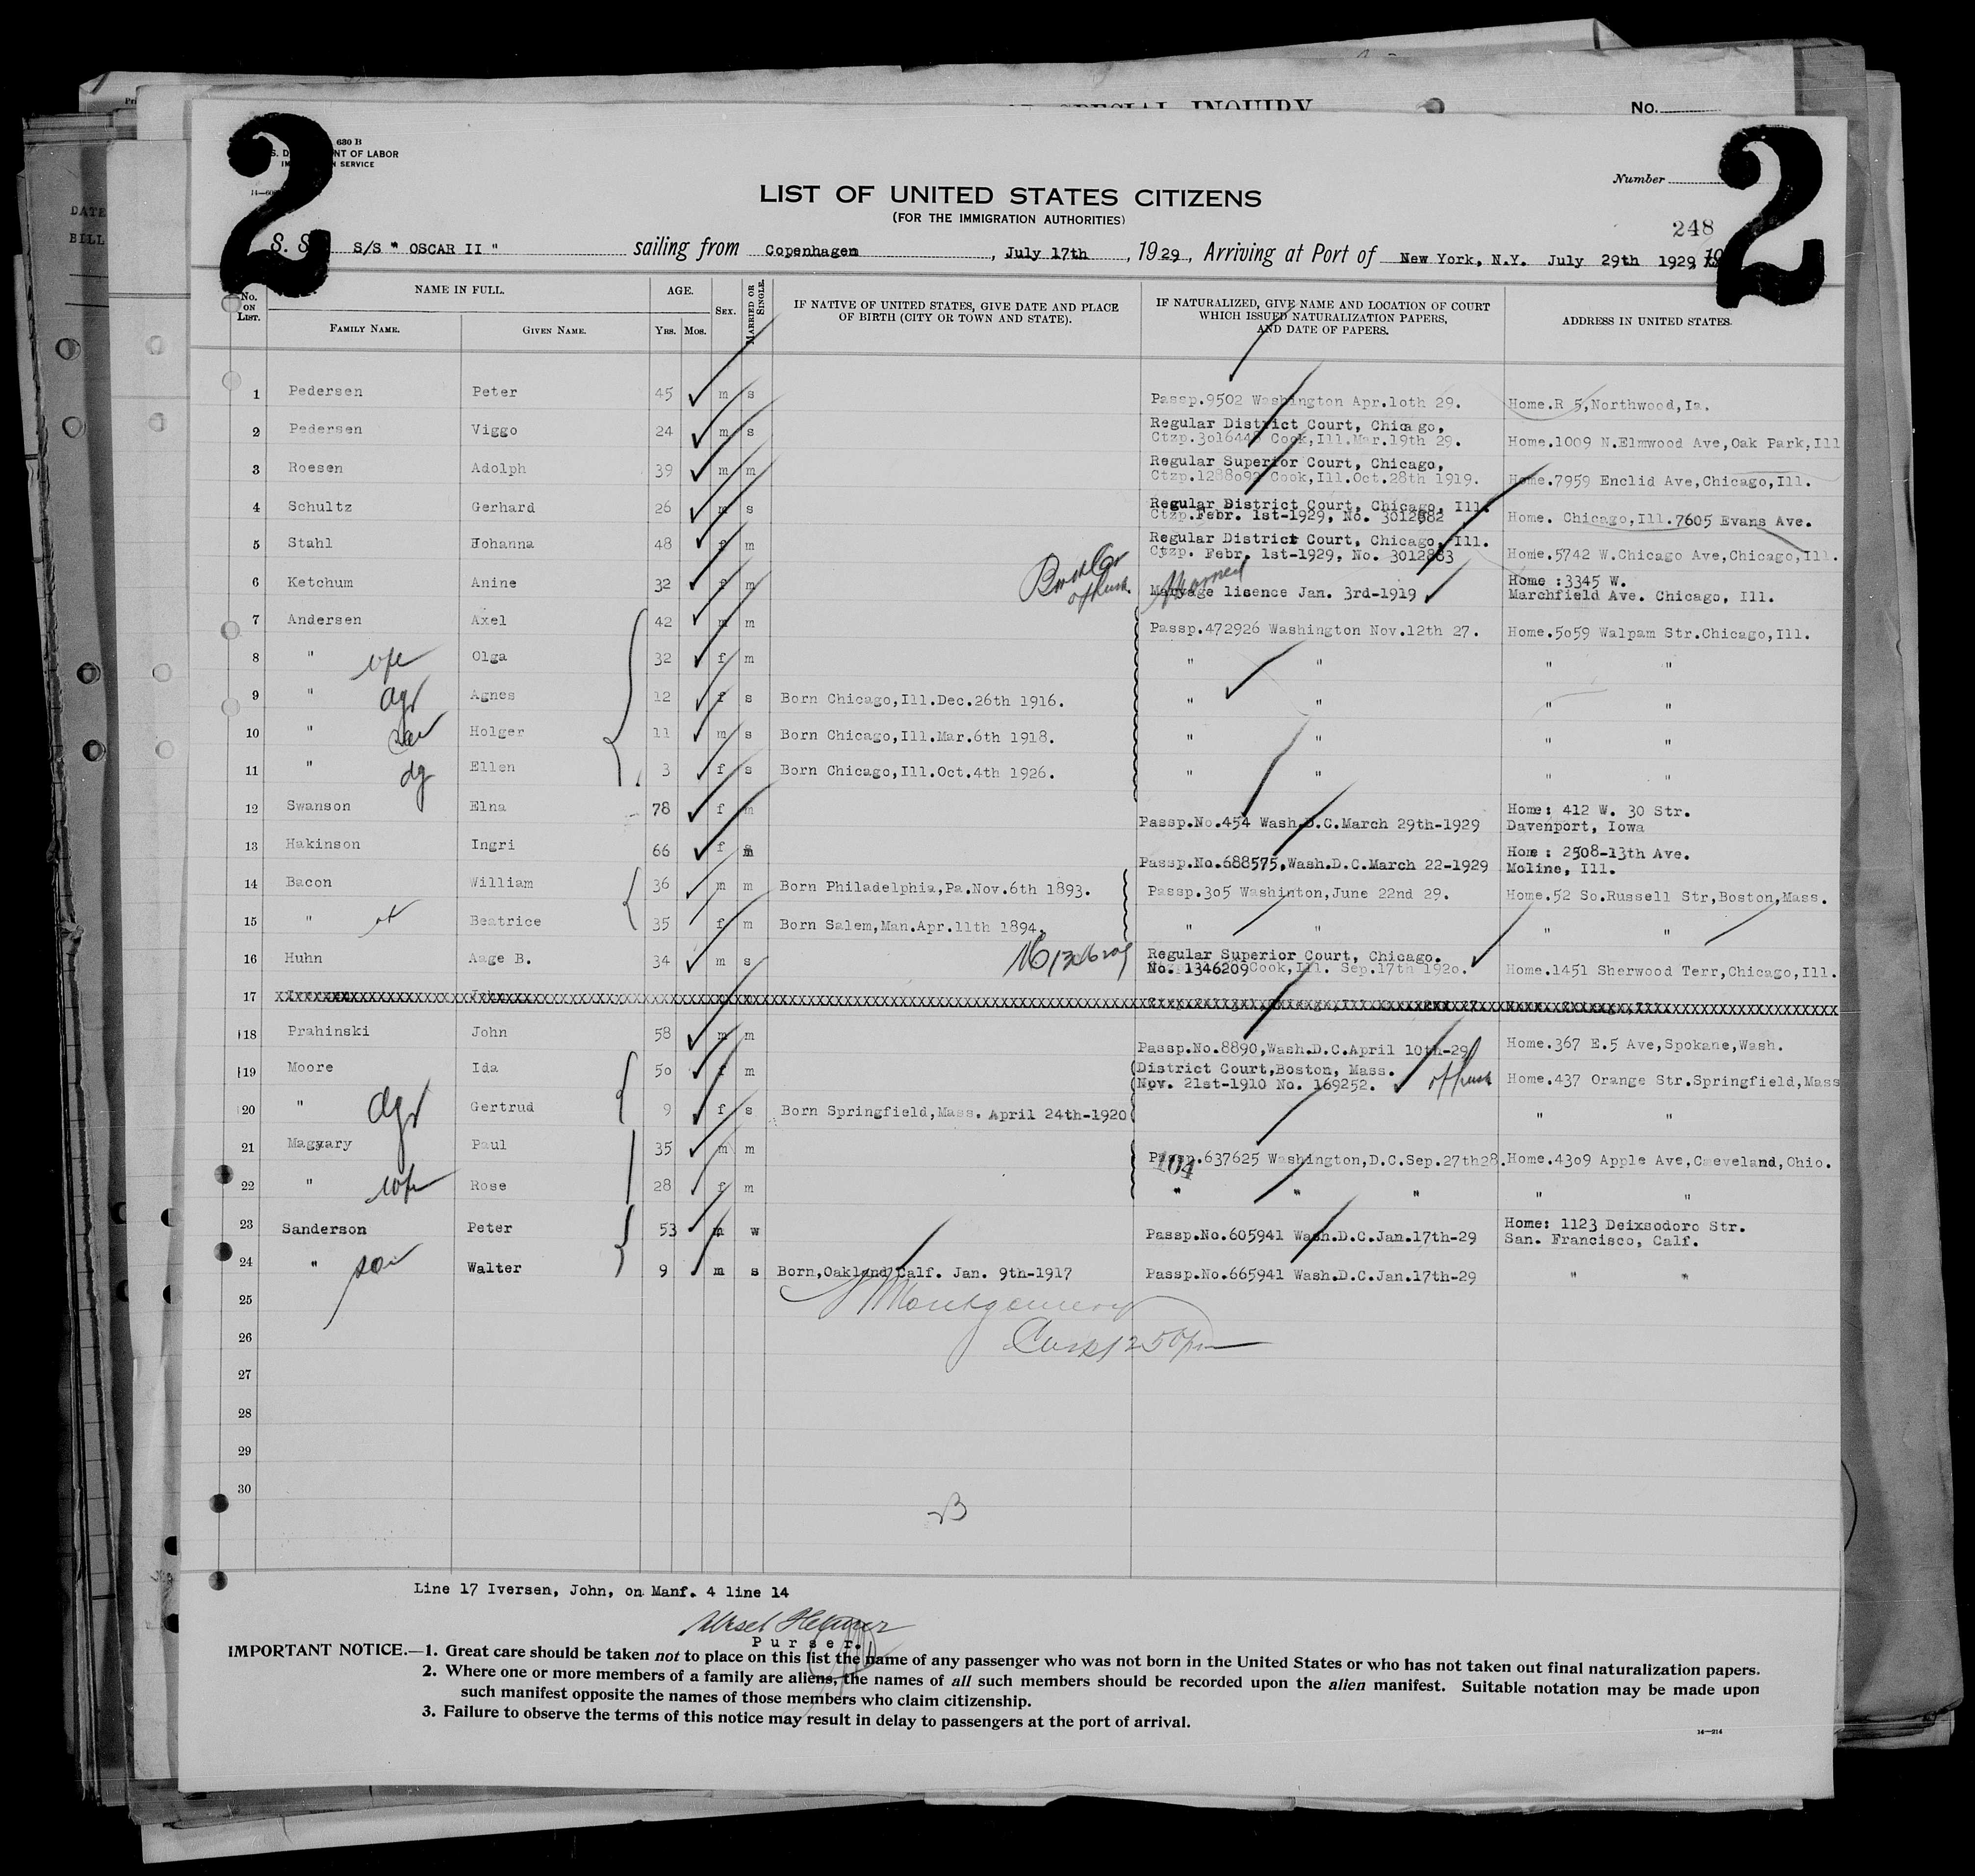 SPECIAL INQUIRY
No.
DATE
BILL
2
2
630 B
NT OF LABOR
SERVICE
Number
LIST OF UNITED STATES CITIZENS
(FOR THE IMMIGRATION AUTHORITIES)
248
S. S. S/S " OSCAR II " sailing from Copenhagen, July 17th, 1929, Arriving at Port of New York, N.Y. July 29th 1929
No. ON LIST.
NAME IN FULL.
FAMILY NAME.
GIVEN NAME.
AGE.
YRS. MOS.
SEX.
MARRIED OR SINGLE.
IF NATIVE OF UNITED STATES, GIVE DATE AND PLACE OF BIRTH (CITY OR TOWN AND STATE).
IF NATURALIZED, GIVE NAME AND LOCATION OF COURT WHICH ISSUED NATURALIZATION PAPERS, AND DATE OF PAPERS.
ADDRESS IN UNITED STATES.
1 Pedersen Peter 45 m s Passp.9502 Washington Apr.1oth 29. Home.R 5,Northwood,Ia.
2 Pedersen Viggo 24 m s Regular District Court, Chicago, Ctzp.3o16448 Cook,Ill.Mar.19th 29. Home.1009 N.Elmwood Ave,Oak Park,Ill
3 Roesen Adolph 39 m m Regular Superior Court, Chicago, Ctzp.1288o92 Cook,Ill.Oct.28th 1919. Home.7959 Enclid Ave,Chicago,Ill.
4 Schultz Gerhard 26 m s Regular District Court, Chicago, Ill. Ctzp.Febr. 1st-1929, No. 3012882 Home. Chicago,Ill.7605 Evans Ave.
5 Stahl Johanna 48 f m Regular District Court, Chicago, Ill. Ctzp. Febr. 1st-1929, No. 3012883 Home.5742 W.Chicago Ave,Chicago,Ill.
6 Ketchum Anine 32 f m of husb. Married Marrage lisence Jan. 3rd-1919 Home :3345 W. Marchfield Ave. Chicago, Ill.
7 Andersen Axel 42 m m Passp.472926 Washington Nov.12th 27. Home.5o59 Walpam Str.Chicago,Ill.
8 " wfe Olga 32 f m " " " "
9 " dgr Agnes 12 f s Born Chicago,Ill.Dec.26th 1916. " " " "
10 " son Holger 11 m s Born Chicago,Ill.Mar.6th 1918. " " " "
11 " dg Ellen 3 f s Born Chicago,Ill.Oct.4th 1926. " " " "
12 Swanson Elna 78 f m Passp.No.454 Wash,D.C.March 29th-1929 Home: 412 W. 30 Str. Davenport, Iowa
13 Hakinson Ingri 66 f m Passp.No.688575,Wash.D.C.March 22-1929 Home : 2508-13th Ave. Moline, Ill.
14 Bacon William 36 m m Born Philadelphia,Pa.Nov.6th 1893. Passp.3o5 Washinton,June 22nd 29. Home.52 So.Russell Str,Boston,Mass.
15 " Beatrice 35 f m Born Salem,Man.Apr.11th 1894. " " " "
16 Huhn Aage B. 34 m s No 1346209 Regular Superior Court, Chicago. No. 1346209 Cook,Ill. Sep.17th 192o. Home.1451 Sherwood Terr,Chicago,Ill.
17
18 Prahinski John 58 m m Passp.No.8890,Wash.D.C.April 10th-29 Home.367 E.5 Ave,Spokane,Wash.
19 Moore Ida 5o f m District Court,Boston, Mass. Nov. 21st-1910 No. 169252. of husb Home.437 Orange Str.Springfield,Mass
20 " dgr Gertrud 9 f s Born Springfield,Mass. April 24th-1920 " "
21 Magyary Paul 35 m m Passp.637625 Washington,D.C.Sep.27th28. Home.43o9 Apple Ave,Cneveland,Ohio.
104
22 " wfe Rose 28 f m " " " " "
23 Sanderson Peter 53 m w Passp.No.605941 Wash.D.C.Jan.17th-29 Home: 1123 Deixsodoro Str. San. Francisco, Calf.
24 " son Walter 9 m s Born,Oakland,Calf. Jan. 9th-1917 Passp.No.665941 Wash.D.C.Jan.17th-29 " "
25
Montgomery
26
27
28
29
30
B
Line 17 Iversen, John, on Manf. 4 line 14
Purser.
IMPORTANT NOTICE.—1. Great care should be taken not to place on this list the name of any passenger who was not born in the United States or who has not taken out final naturalization papers.
2. Where one or more members of a family are aliens, the names of all such members should be recorded upon the alien manifest. Suitable notation may be made upon
such manifest opposite the names of those members who claim citizenship.
3. Failure to observe the terms of this notice may result in delay to passengers at the port of arrival.
14—214